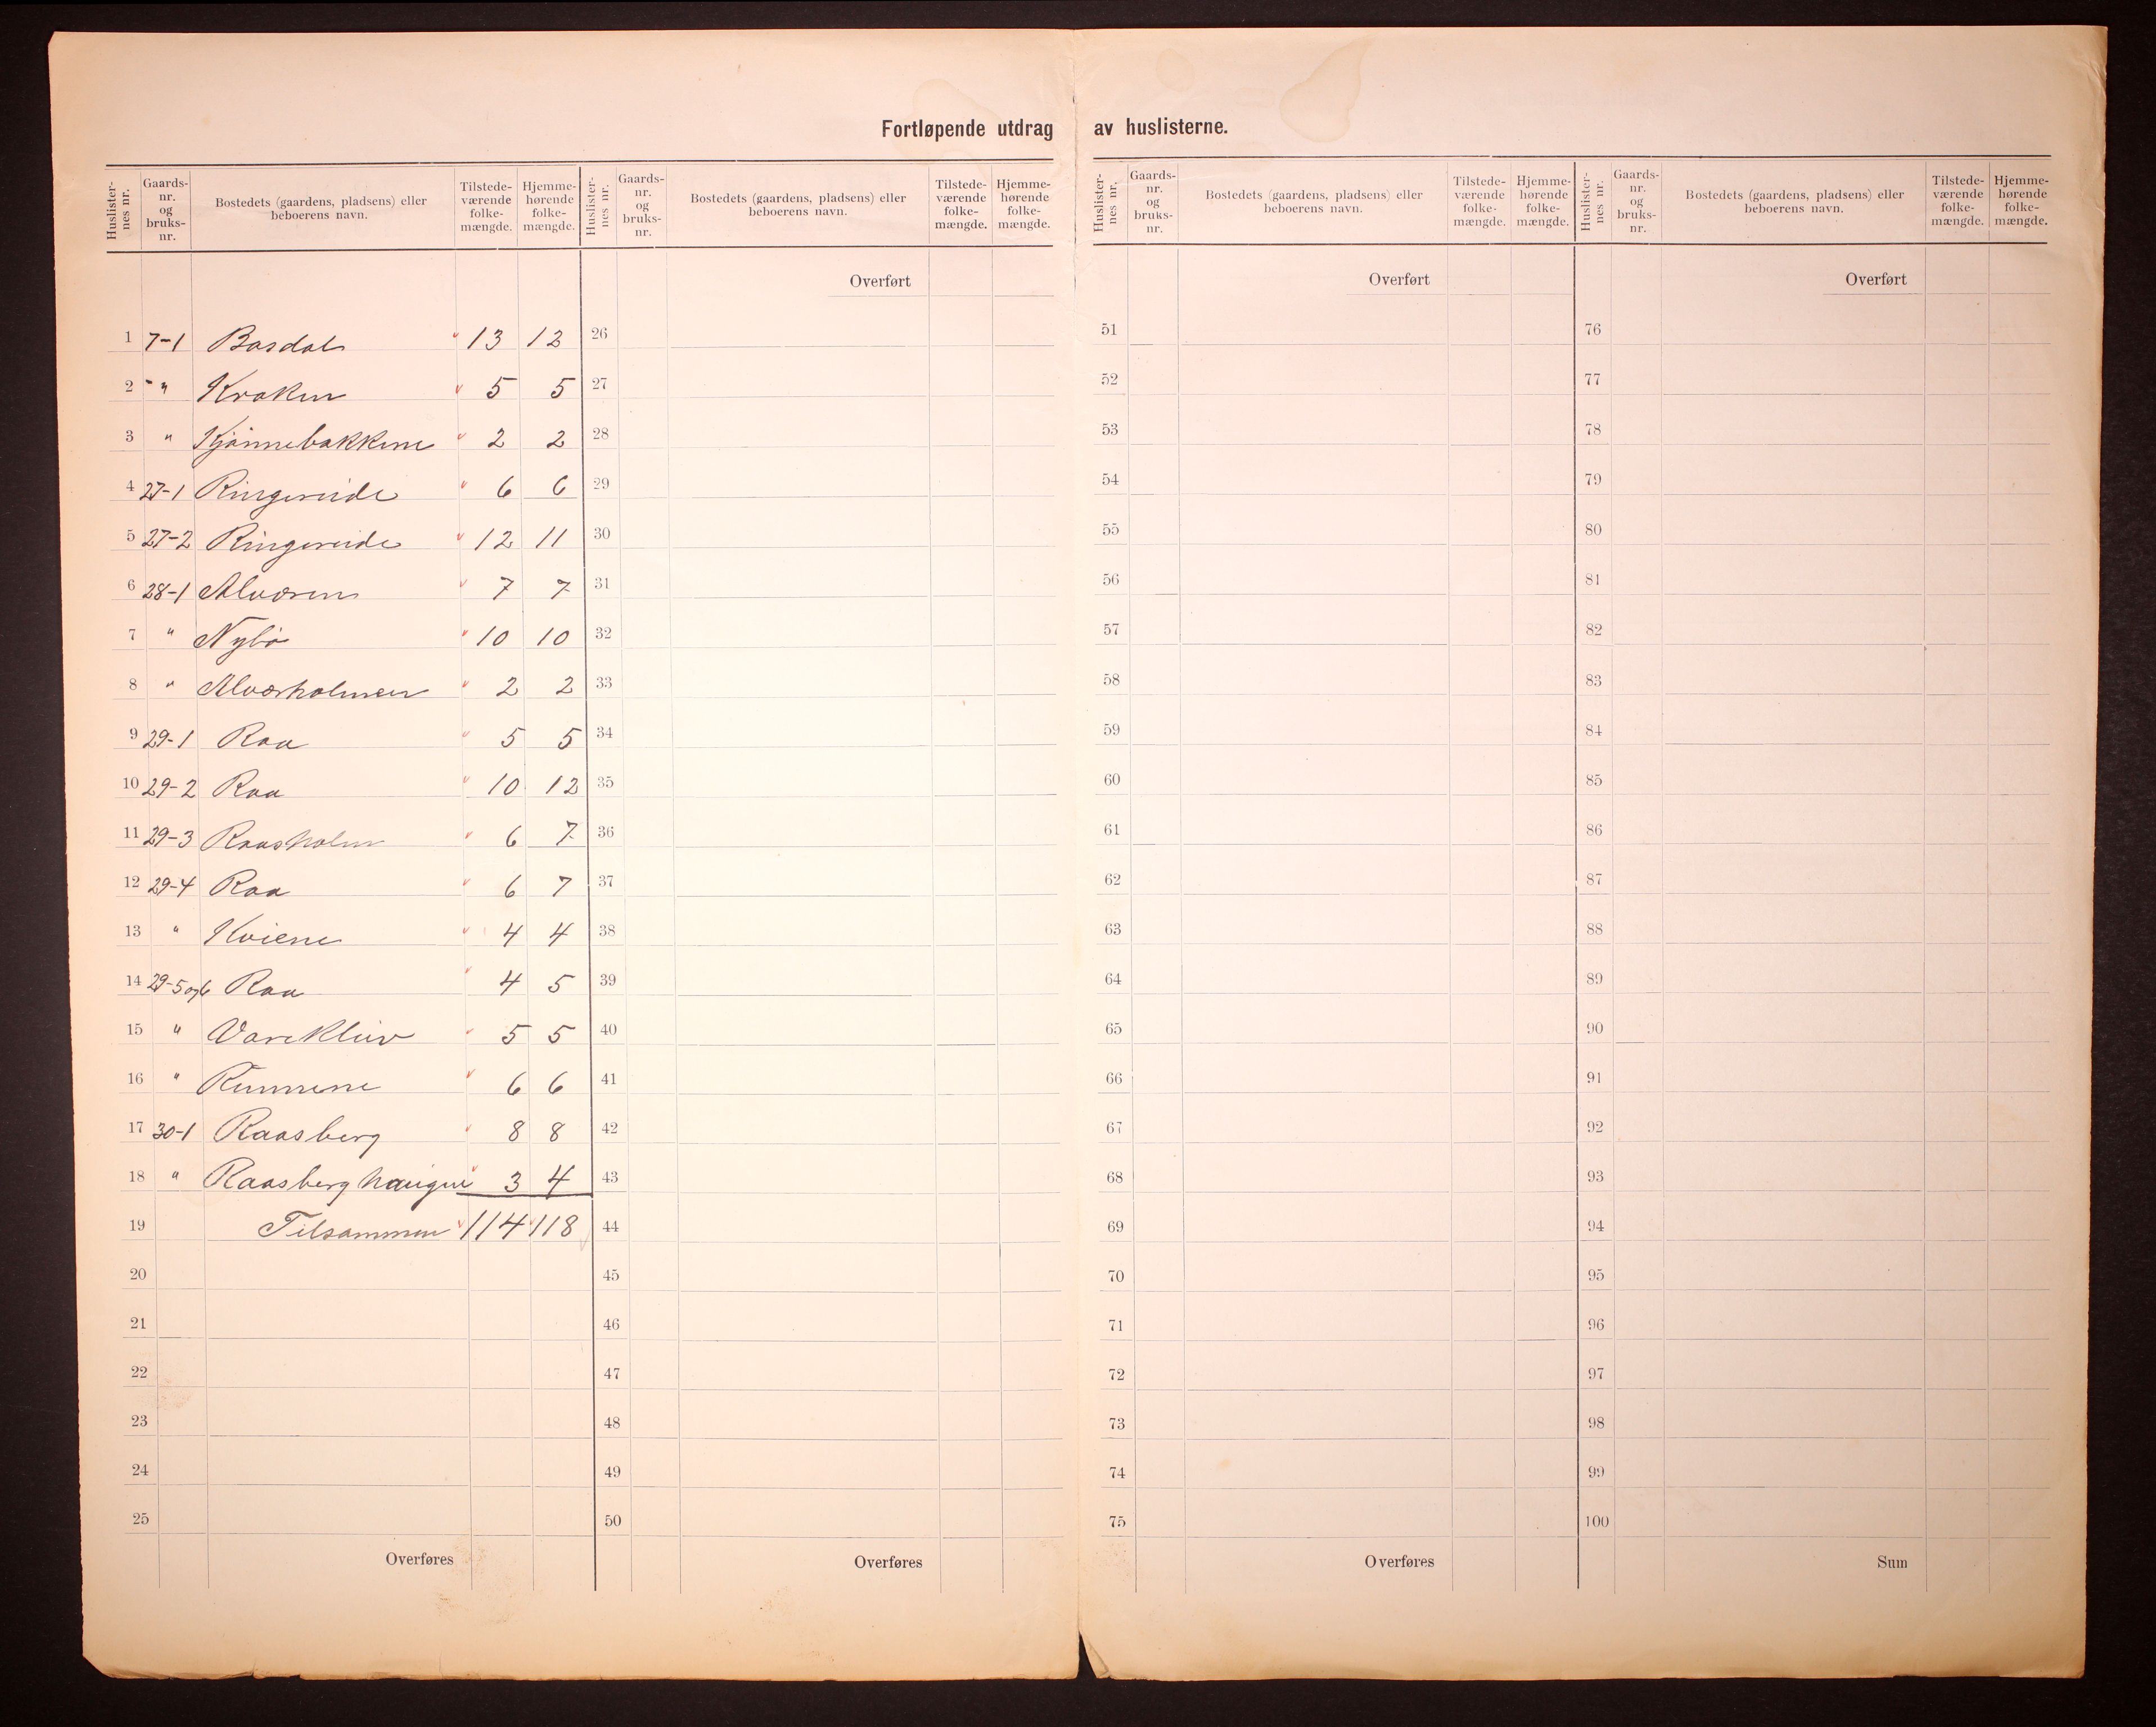 Fortløpende utdrag av huslisterne.
Huslisternes nr. Gaardsnr. og bruksnr. Bostedets (gaardens, pladsens) eller beboerens navn. Tilstedeværende folkemængde. Hjemmehørende folkemængde.
Huslisternes nr. Gaardsnr. og bruksnr. Bostedets (gaardens, pladsens) eller beboerens navn. Tilstedeværende folkemængde. Hjemmehørende folkemængde.
Huslisternes nr. Gaardsnr. og bruksnr. Bostedets (gaardens, pladsens) eller beboerens navn. Tilstedeværende folkemængde. Hjemmehørende folkemængde.
Huslisternes nr. Gaardsnr. og bruksnr. Bostedets (gaardens, pladsens) eller beboerens navn. Tilstedeværende folkemængde. Hjemmehørende folkemængde.
Overført Overført Overført
1 7-1 Basdal 13 12 26 51 76
2 - " Kraken 5 5 27 52 77
3 " Kjønnebakkene 2 2 28 53 78
4 27-1 Ringereide 6 6 29 54 79
5 27-2 Ringereide 12 11 30 55 80
6 28-1 Alværen 7 7 31 56 81
7 " Nybø 10 10 32 57 82
8 " Alværholmen 2 2 33 58 83
9 29-1 Raa 5 5 34 59 84
10 29-2 Raa 10 12 35 60 85
11 29-3 Raasholm 6 7 36 61 86
12 29-4 Raa 6 7 37 62 87
13 " Kviene 4 4 38 63 88
14 29-5 og 6 Raa 4 5 39 64 89
15 " Varekleiv 5 5 40 65 90
16 " Rimmene 6 6 41 66 91
17 30-1 Raasberg 8 8 42 67 92
18 " Raasberghaugen 3 4 43 68 93
19 Tilsammen 114 118 44 69 94
20 45 70 95
21 46 71 96
22 47 72 97
23 48 73 98
24 49 74 99
25 50 75 100
Overføres Overføres Overføres Sum